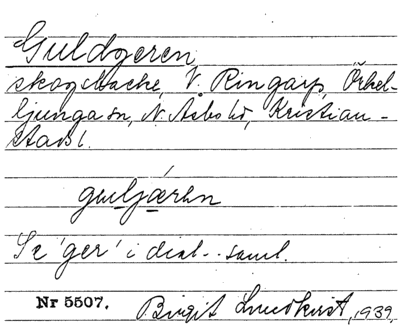 Guldgeren
skogsbacke, V. Ringarp, Örkel-
ljunga sn, N. Åsbo hd, Kristian-
stads l.
guljæren
Se 'ger' i dial.-saml.
Nr 5507. Birgit Lundkvist, 1939.